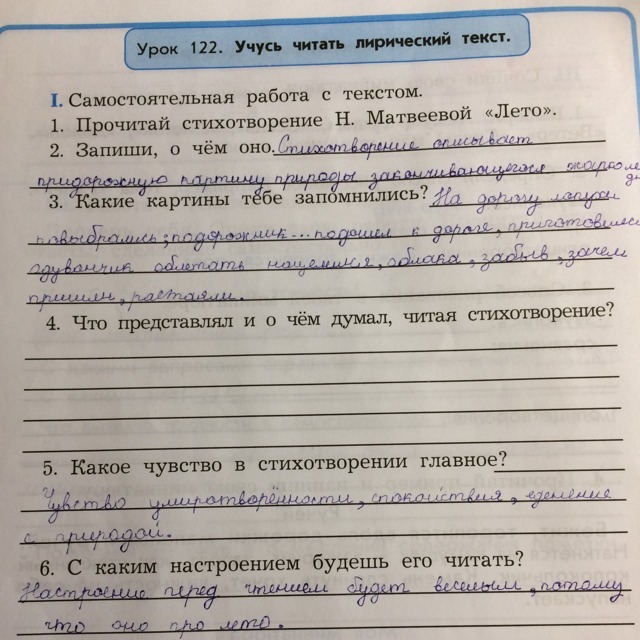 Урок 122. Учусь читать лирический текст.
I. Самостоятельная работа с текстом.
1. Прочитай стихотворение Н. Матвеевой «Лето».
2. Запиши, о чём оно. Стихотворение описывает
придорожную картину природы заканчивающегося жаркого
3. Какие картины тебе запомнились? На дорогу лопухи
повыбрались; подорожник... подошел к дороге,
одуванчик облетать нацелился, облака, забыв, зачем
пришли, растаяли.
4. Что представлял и о чём думал, читая стихотворение?
5. Какое чувство в стихотворении главное?
Чувство умиротворённости, спокойствия, единение
с природой.
6. С каким настроением будешь его читать?
Настроение перед чтением будет веселым, потому
что оно про лето.